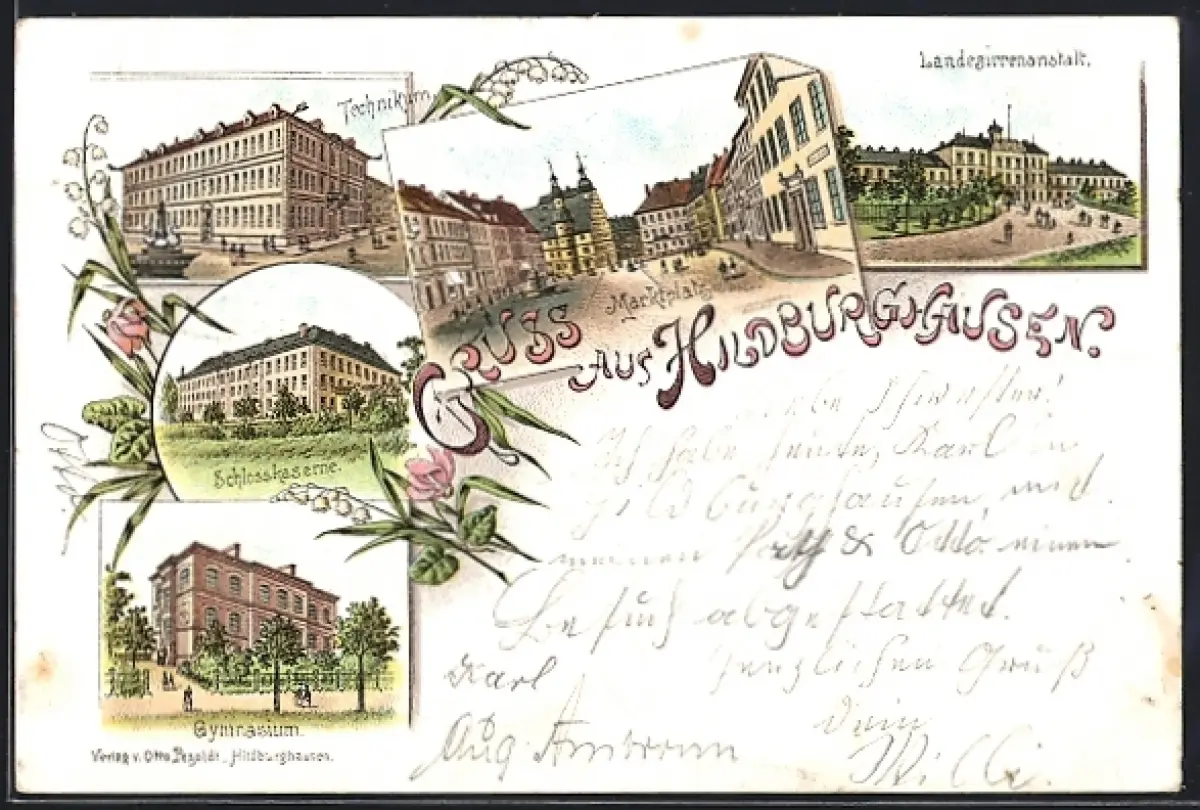 Technikum.
Landesirrenanstalt.
Marktplatz.
GRUSS AUS HILDBURGHAUSEN.
Schlosskaserne.
Gymnasium.
Verlag v. Otto Pezoldt, Hildburghausen.
Liebe Schwester!
Ich habe heute, Karl in
Hildburghausen, mit
meinen & Otto einen
Besuch abgestattet.
Karl herzlichen Gruß
Dein
Aug. Ambronn Willi.